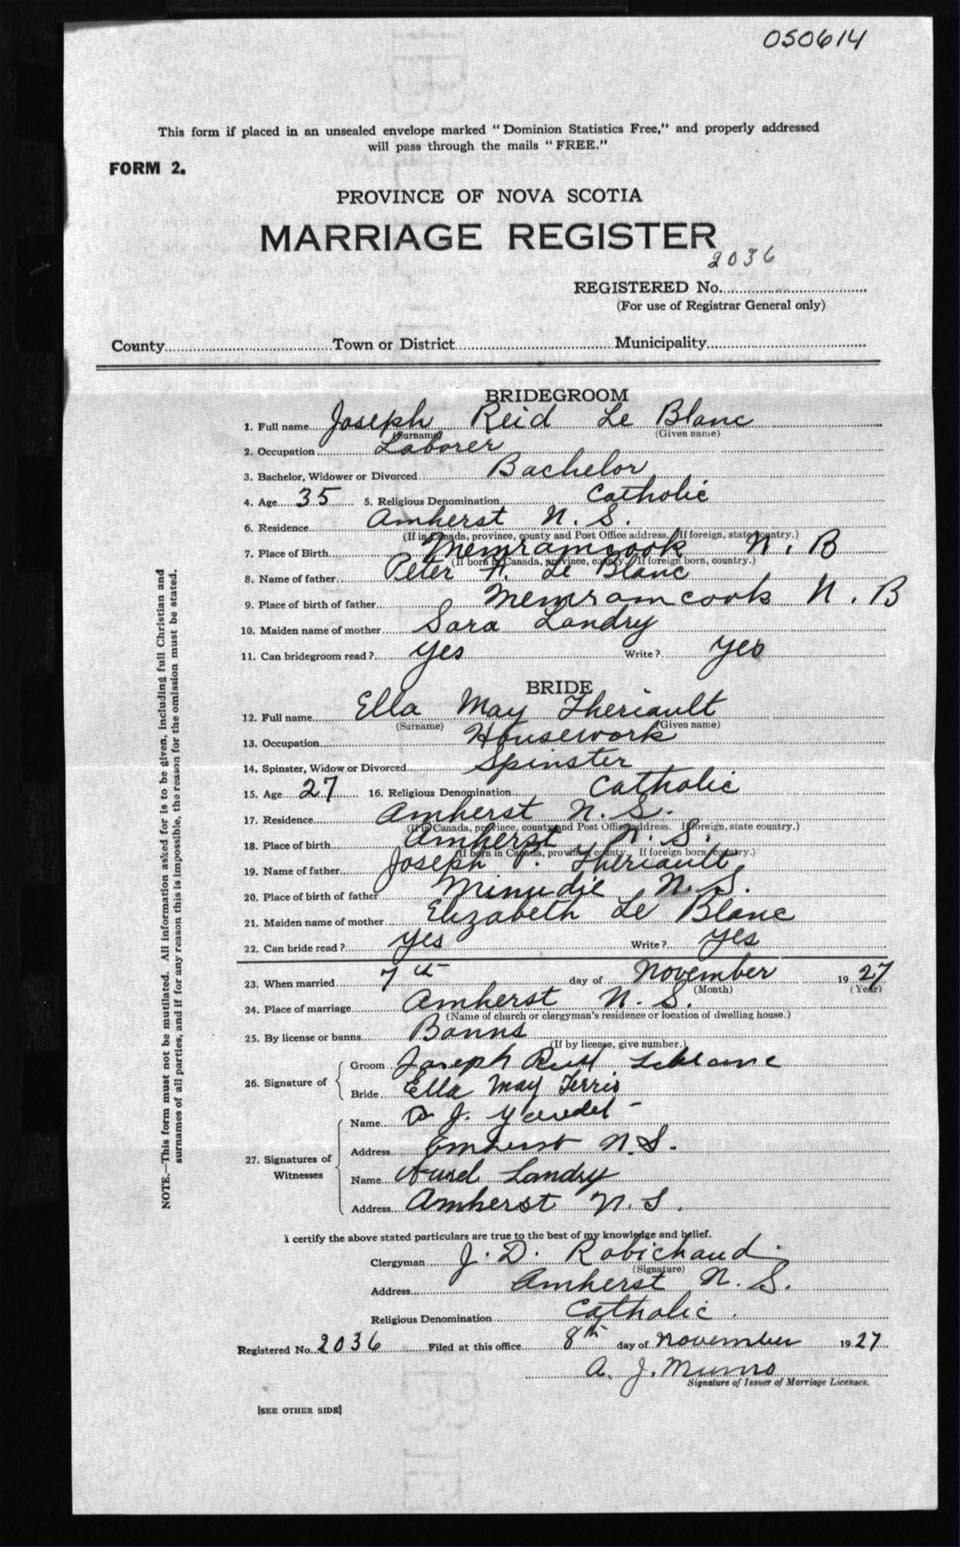 050614
This form if placed in an unsealed envelope marked "Dominion Statistics Free," and properly addressed
will pass through the mails "FREE."
FORM 2.
PROVINCE OF NOVA SCOTIA
MARRIAGE REGISTER
REGISTERED No. 2036
(For use of Registrar General only)
County Town or District Municipality
BRIDEGROOM
1. Full name Joseph Reid Le Blanc
(Surname) (Given name)
2. Occupation Laborer
3. Bachelor, Widower or Divorced Bachelor
4. Age 35 5. Religious Denomination Catholic
6. Residence Amherst N. S.
(If in Canada, province, county and Post Office address. If foreign, state country.)
7. Place of Birth Memramcook N. B
(If born in Canada, province, county. If foreign born, country.)
8. Name of father Peter F. Le Blanc
9. Place of birth of father Memramcook N. B
10. Maiden name of mother Sara Landry
11. Can bridegroom read? yes Write? yes
BRIDE
12. Full name Ella May Theriault
(Surname) (Given name)
13. Occupation Housework
14. Spinster, Widow or Divorced Spinster
15. Age 27 16. Religious Denomination Catholic
17. Residence Amherst N. S.
(If in Canada, province, county and Post Office address. If foreign, state country.)
18. Place of birth Amherst N. S.
(If born in Canada, province, county. If foreign born, country.)
19. Name of father Joseph P. Theriault
20. Place of birth of father Minudie N. S.
21. Maiden name of mother Elizabeth Le Blanc
22. Can bride read? yes Write? yes
23. When married 7th day of November 1927
(Month) (Year)
24. Place of marriage Amherst N. S.
(Name of church or clergyman's residence or location of dwelling house.)
25. By license or banns Banns
(If by license, give number.)
26. Signature of
Groom Joseph Reid Leblanc
Bride Ella May Terris
27. Signatures of Witnesses
Name J.
Address Amherst N.S.
Name Aurel Landry
Address Amherst N. S.
I certify the above stated particulars are true to the best of my knowledge and belief.
Clergyman J. D. Robichaud
(Signature)
Address Amherst N. S.
Religious Denomination Catholic.
Registered No. 2036 Filed at this office 8th day of November 1927
A. J. Munro
Signature of Issuer of Marriage Licenses.
[SEE OTHER SIDE]
NOTE.—This form must not be mutilated. All information asked for is to be given, including full Christian and
surnames of all parties, and if for any reason this is impossible, the reason for the omission must be stated.